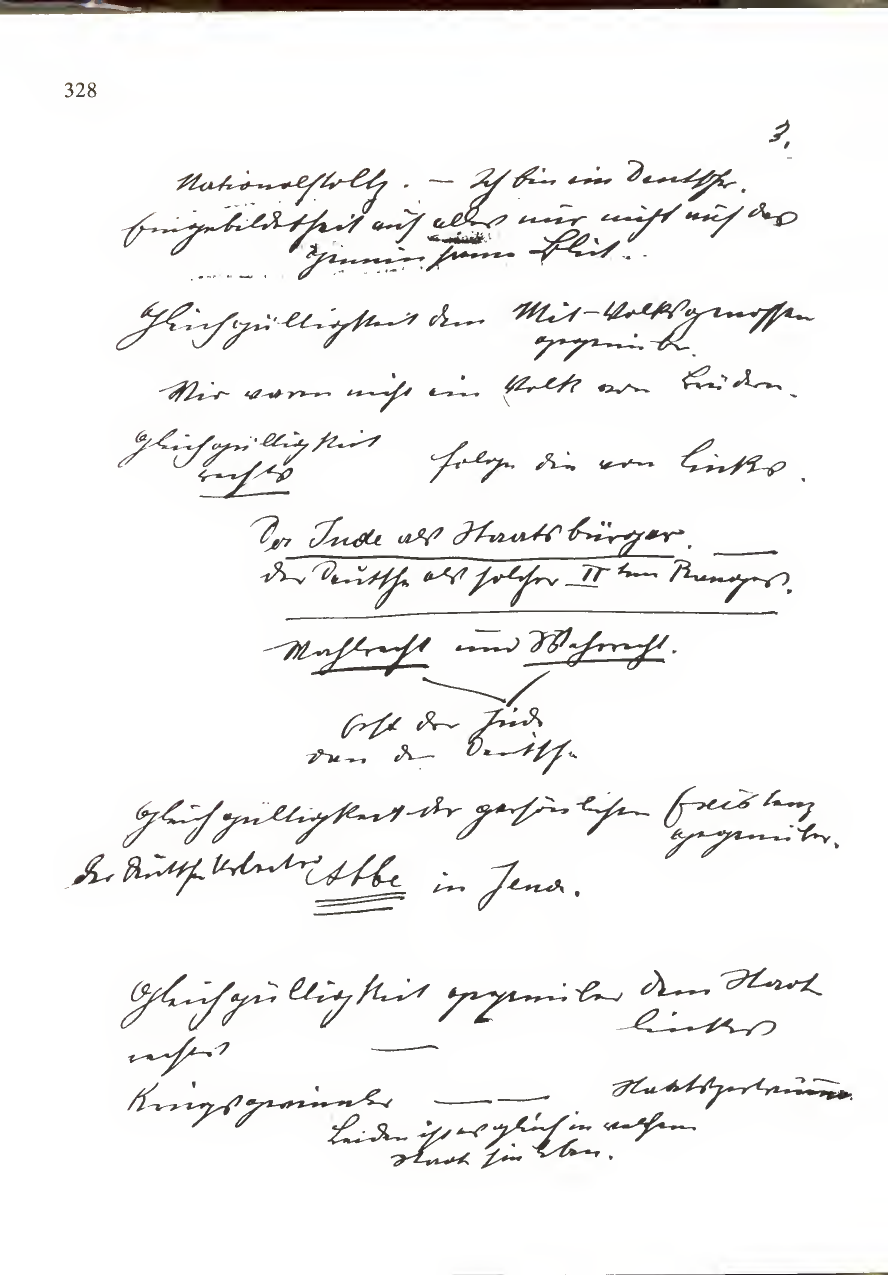 328
3.
Nationalstolz. — Ich bin ein Deutscher.
Eingebildetheit auf alles nur nicht auf das
gemeinsame Blut.
Gleichgültigkeit dem Mit-Volksgenossen
gegenüber.
Wir waren nicht ein Volk von Brüdern.
Gleichgültigkeit
rechts folge die von links.
Der Jude als Staatsbürger. —
der Deutsche als solcher II ten Ranges.
Wahlrecht und Wehrrecht.
Erst der Jude
dann der Deutsche
Gleichgültigkeit der persönlichen Existenz
gegenüber.
Der Deutsche Arbeiter Abbe in Jena.
Gleichgültigkeit gegenüber dem Staat
links
rechts —
Kriegsgewinnler — — Staatszertrümmerer
Beiden ist es gleich in welchem
Staat sie leben.